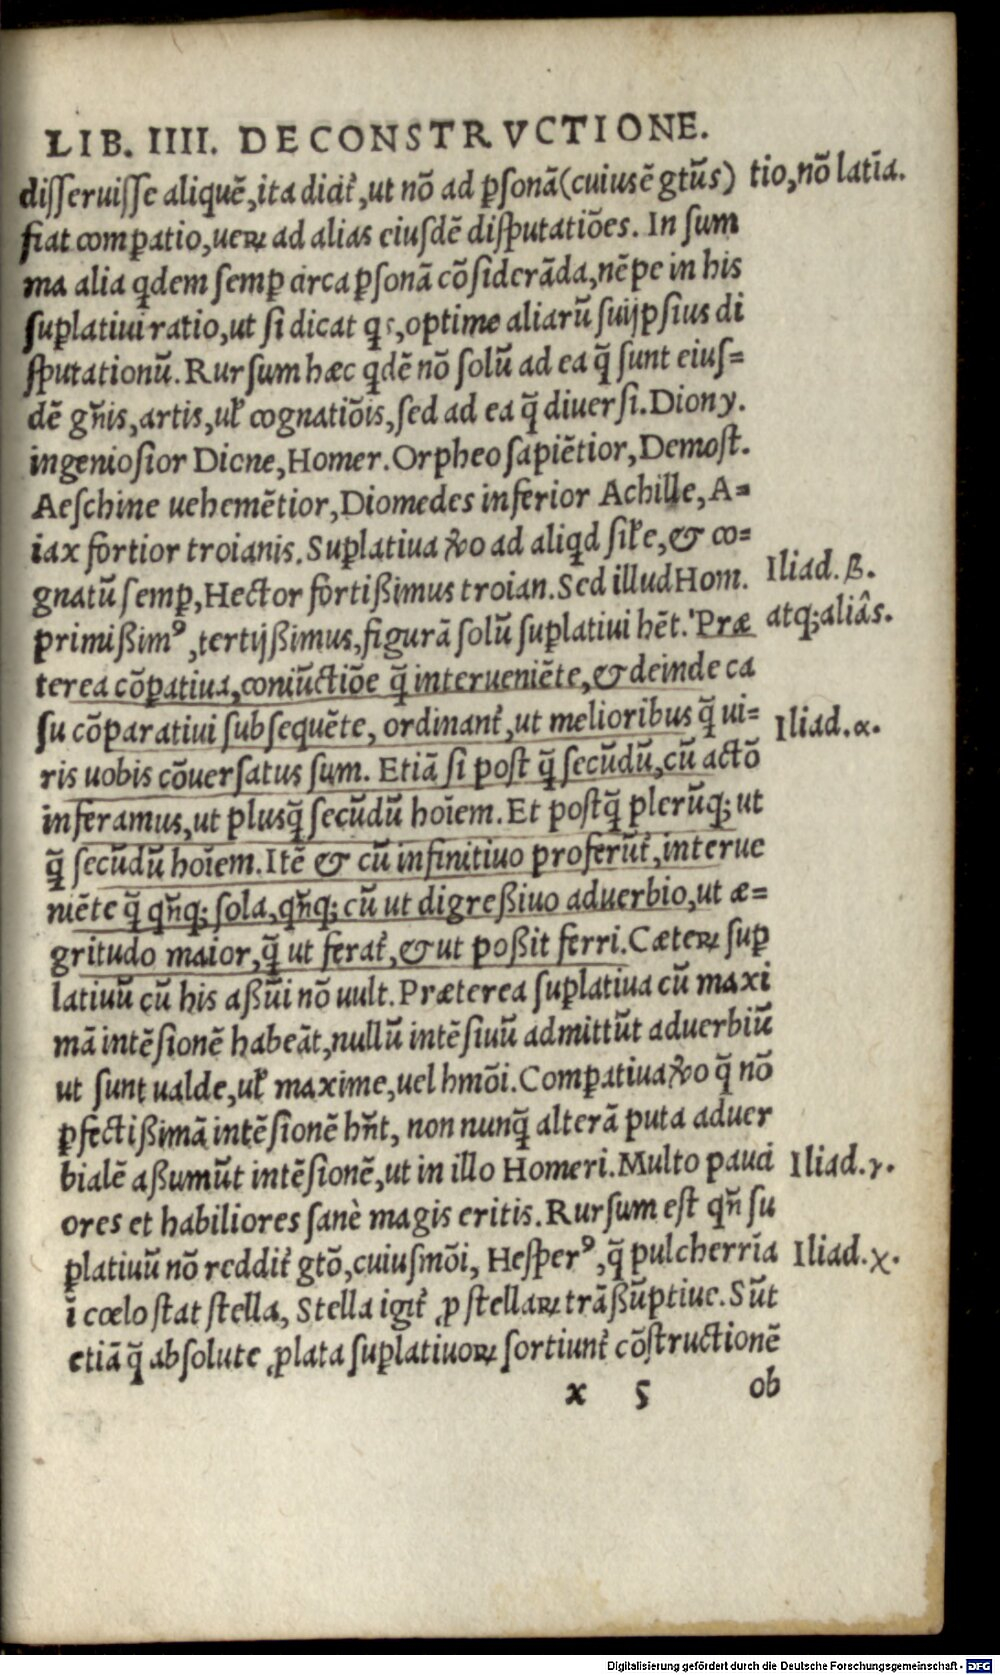 LIB. IIII. DE CONSTRVCTIONE.
disseruisse aliquē, ita dicit᷑, ut nō ad ꝑsonā (cuius ē gtūs)
tio, nō latīa.
fiat comꝑatio, ueꝝ ad alias eiusdē disputatiōes. In sum
ma alia qdem semꝑ circa ꝑsonā cōsiderāda, nēpe in his
suꝑlatiui ratio, ut si dicat qs, optime aliarū suijpsius di
sputationū. Rursum hæc qdē nō solū ad ea q̄ sunt eius=
dē gn̄is, artis, uł cognatiōis, sed ad ea q̄ diuersi. Diony.
ingeniosior Dicne, Homer. Orpheo sapiētior, Demost.
Aeschine uehemētior, Diomedes inferior Achille, A=
iax fortior troianis. Suꝑlatiua ꝟo ad aliqd siłe, & co=
Iliad. β.
gnatū semꝑ, Hector fortißimus troian. Sed illud Hom.
atq; aliâs.
primißimꝰ, tertijßimus, figurā solū suꝑlatiui hēt. Præ
terea cōꝑatiua, coniūctiōe q̄ interueniēte, & deinde ca
su cōparatiui subsequēte, ordinant᷑, ut melioribus q̄ ui=
Iliad. α.
ris uobis cōuersatus sum. Etiā si post q̄ secūdū, cū actō
inferamus, ut plusq̄ secūdū hoīem. Et postq̄ plerūq; ut
q̄ secūdū hoīem. Itē & cū infinitiuo proferūt᷑, interue
niēte q̄ qn̄q; sola, qn̄q; cū ut digreßiuo aduerbio, ut æ=
gritudo maior, q̄ ut ferat᷑, & ut poßit ferri. Cæteꝝ suꝑ
latiuū cū his aßūi nō uult. Præterea suꝑlatiua cū maxi
mā intēsionē habeāt, nullū intēsiuū admittūt aduerbiū
ut sunt ualde, uł maxime, uel hmōi. Comꝑatiua ꝟo q̄ nō
ꝑfectißimā intēsionē hn̄t, non nunq̄ alterā puta aduer
bialē aßumūt intēsionē, ut in illo Homeri. Multo pauci
Iliad. γ.
ores et habiliores sanè magis eritis. Rursum est qn̄ su
ꝑlatiuū nō reddit᷑ gtō, cuiusmōi, Hesperꝰ, q̄ pulcherrīa
Iliad. χ.
ī cœlo stat stella, Stella igit᷑ ꝓ stellaꝝ trāßūptiue. Sūt
etiā q̄ absolute ꝓlata suꝑlatiuoꝝ sortiunt᷑ cōstructionē
x 5 ob
Digitalisierung gefördert durch die Deutsche Forschungsgemeinschaft - DFG